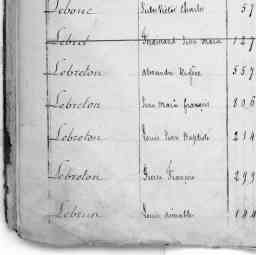 Lebouc Victor Charles 57
Lebret Jean Marie 127
Lebreton Alexandre 557
Lebreton Jean Marie François 806
Lebreton Louis Jean Baptiste 214
Lebreton Pierre François 299
Lebrun Louis aimable 144